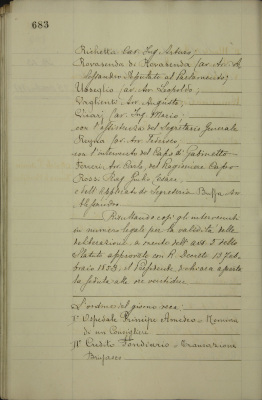 683
Richetta Cav. Ing. Arturo;
Rovasenda di Rovasenda Cav. Av. A-
lessandro Deputato al Parlamento;
Usseglio Cav. Av. Leopoldo;
Vaglienti Av. Augusto;
Vicarj Cav. Ing. Mario;
con l'assistenza del Segretario Generale
Regna Cav. Av. Federico,
con l'intervento del Capo di Gabinetto
Av. Carlo, del Ragioniere Capo
Rossi Rag.
e dell'Applicato di Segreteria Buffa
Alessandro
Risultando così gli intervenuti
in numero legale per la validità delle
deliberazioni, a mente dell'art. 7 dello
Statuto approvato con R. Decreto 13 Feb-
braio 1853, il Presidente dichiara aperta
la seduta alle ore ventidue
L'ordine del giorno reca:
I° Ospedale Principe Amedeo - Nomina
di un Consigliere
II° Credito Fondiario - Transazione